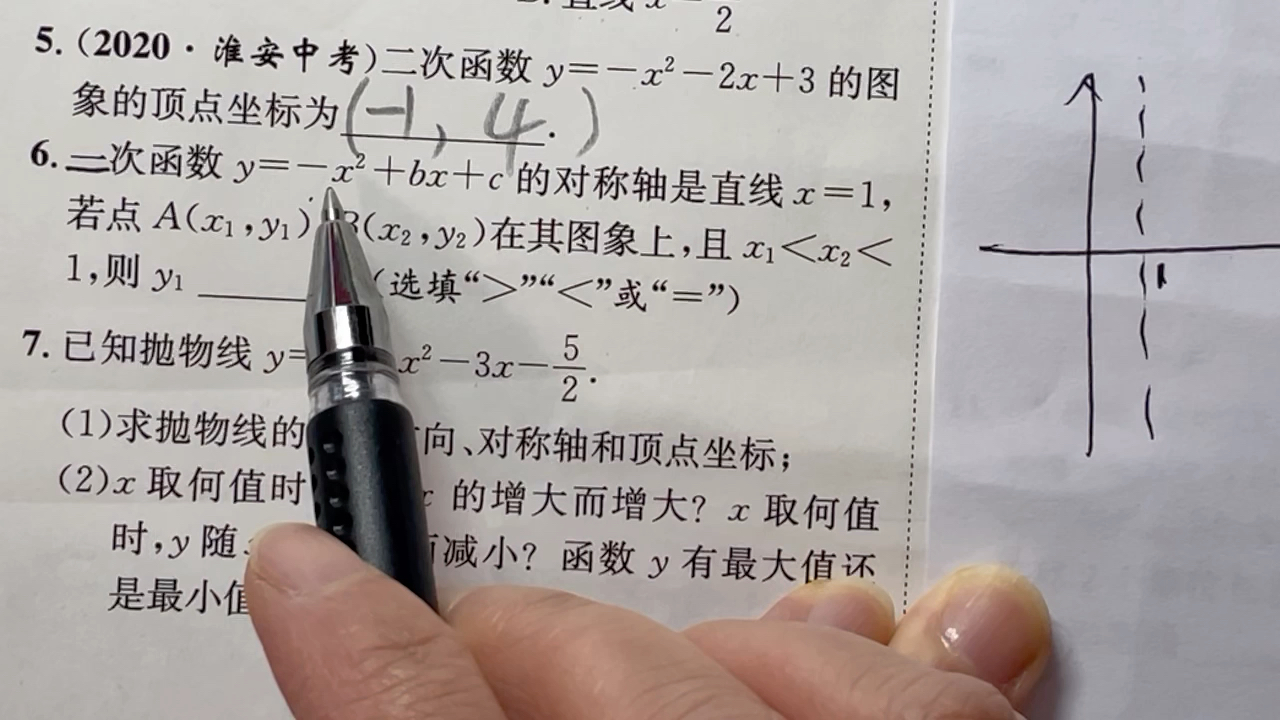 直线 x=
2
5.(2020·淮安中考)二次函数 y=-x²-2x+3 的图
象的顶点坐标为(-1,4.)
6.二次函数 y=-x²+bx+c 的对称轴是直线 x=1,
若点 A(x₁,y₁) B(x₂,y₂)在其图象上,且 x₁<x₂<
1,则 y₁ (选填“>”“<”或“=”)
7.已知抛物线 y= x²-3x-5/2.
(1)求抛物线的 方向、对称轴和顶点坐标;
(2)x 取何值时 x 的增大而增大? x 取何值
时,y 随 而减小? 函数 y 有最大值还
是最小值
1